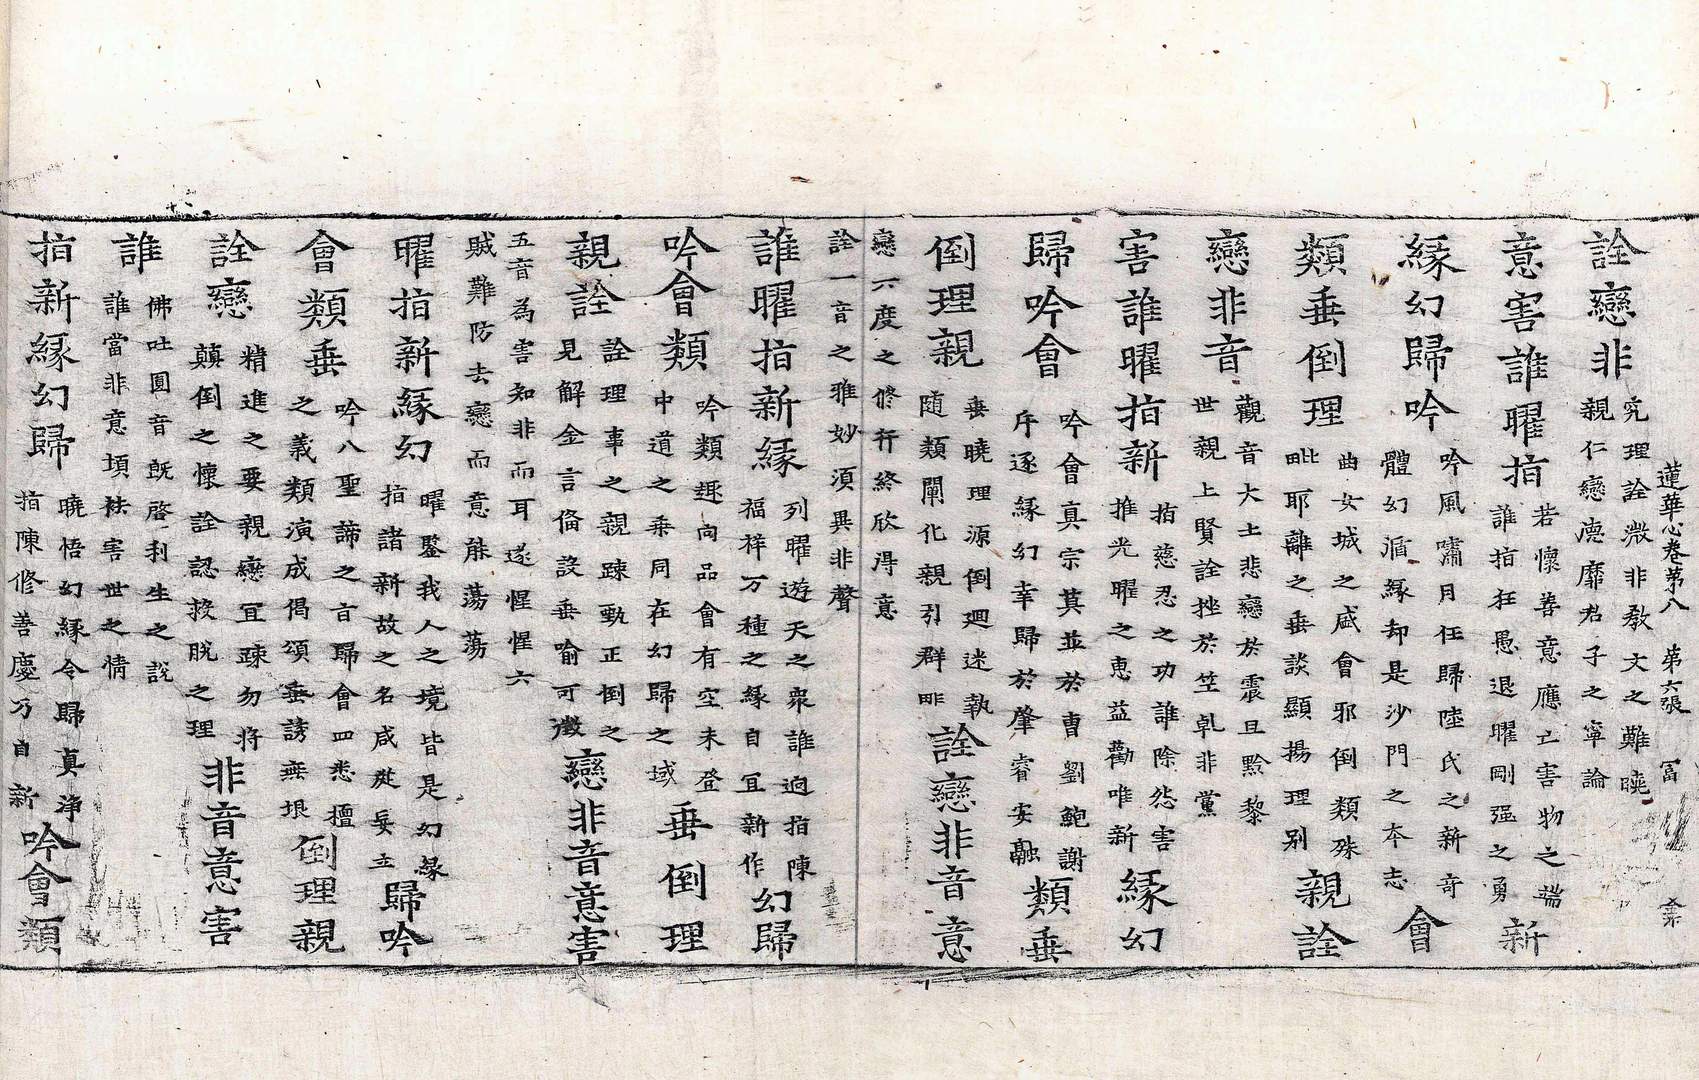 蓮華心卷第八 第六張 冨
詮戀非
究理詮微非教文之難曉
親仁戀德靡君子之寧論
意害誰曜指
若懷善意應亡害物之端
誰指狂愚退曜剛强之勇
新
緣幻歸吟
吟風嘯月任歸陸氏之新奇
體幻循緣却是沙門之本志
會
類垂倒理
曲女城之盛會邪倒類殊
毗耶離之垂談顯揚理别
親詮
戀非音
觀音大士悲戀於震旦黔黎
世親上賢詮挫於竺乹非黨
害誰曜指新
指慈忍之功誰除忿害
推光曜之惠益勸唯新
緣幻
歸吟會
吟會真宗莫並於曹劉鮑謝
斥逐緣幻幸歸於肇睿安融
類垂
倒理親
垂曉理源倒廻迷執
随類闡化親引群甿
詮戀非音意
戀六度之修行終欣得意
詮一音之雅妙湏異非聲
誰曜指新緣
列曜遊天之衆誰逈指陳
福祥万種之緣自冝新作
幻歸
吟會類
吟類趣向品會有空未登
中道之乘同在幻歸之域
垂倒理
親詮
詮理事之親踈勁正倒之
見解金言俻設垂喻可徵
戀非音意害
五音為害知非而耳遂惺惺六
賊難防去戀而意能蕩蕩
曜指新緣幻
曜鑒我人之境皆是幻緣
指諸新故之名咸從妄立
歸吟
會類垂
吟八聖諦之言歸會四悉檀
之義類演成偈頌垂誘無垠
倒理親
詮戀
精進之要親戀冝踈勿將
顛倒之懷詮認救脫之理
非音意害
誰
佛吐圓音旣啓利生之說
誰當非意湏袪害世之情
指新緣幻歸
曉悟幻緣令歸真淨
指陳修善慶乃自新
吟會類